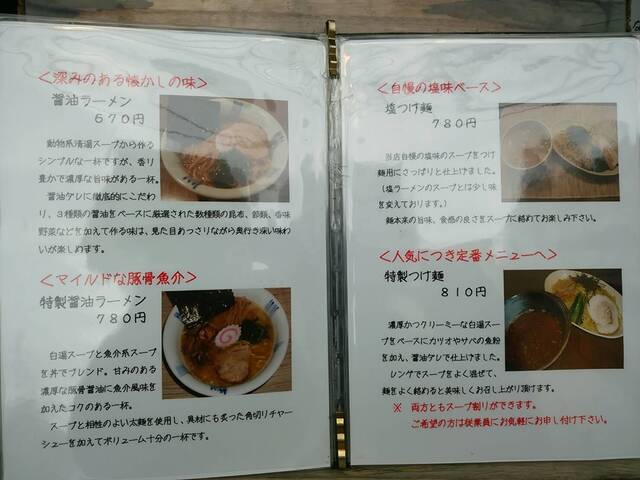 ＜深みのある懐かしの味＞
醤油ラーメン
６７０円
動物系清湯スープから作る
シンプルな一杯ですが、香り
豊かで濃厚な旨味がある一杯。
醤油タレに徹底的にこだわ
り、３種類の醤油をベースに厳選された数種類の昆布、節類、香味
野菜などを加えて作る味は、見た目あっさりながら奥行き深い味わ
いが楽しめます。
＜マイルドな豚骨魚介＞
特製醤油ラーメン
７８０円
白湯スープと魚介系スープ
を丼でブレンド。甘みのある
濃厚な豚骨醤油に魚介風味を
加えたコクのある一杯。
スープと相性のよい太麺を使用し、具材にも炙った角切りチャー
シューを加えてボリューム十分の一杯です。
＜自慢の塩味ベース＞
塩つけ麺
７８０円
当店自慢の塩味のスープをつけ
麺用にさっぱりと仕上げました。
（塩ラーメンのスープとは少し味
を変えております。）
麺本来の旨味、食感の良さをスープに絡めてお楽しみ下さい。
＜人気につき定番メニューへ＞
特製つけ麺
８１０円
濃厚かつクリーミーな白湯スー
プをベースにカツオやサバの魚粉
を加え、醤油タレで仕上げました。
レンゲでスープをよく混ぜて、
麺をよく絡めると美味しくお召し上がり頂けます。
※ 両方ともスープ割りができます。
ご希望の方は従業員にお気軽にお申し付け下さい。